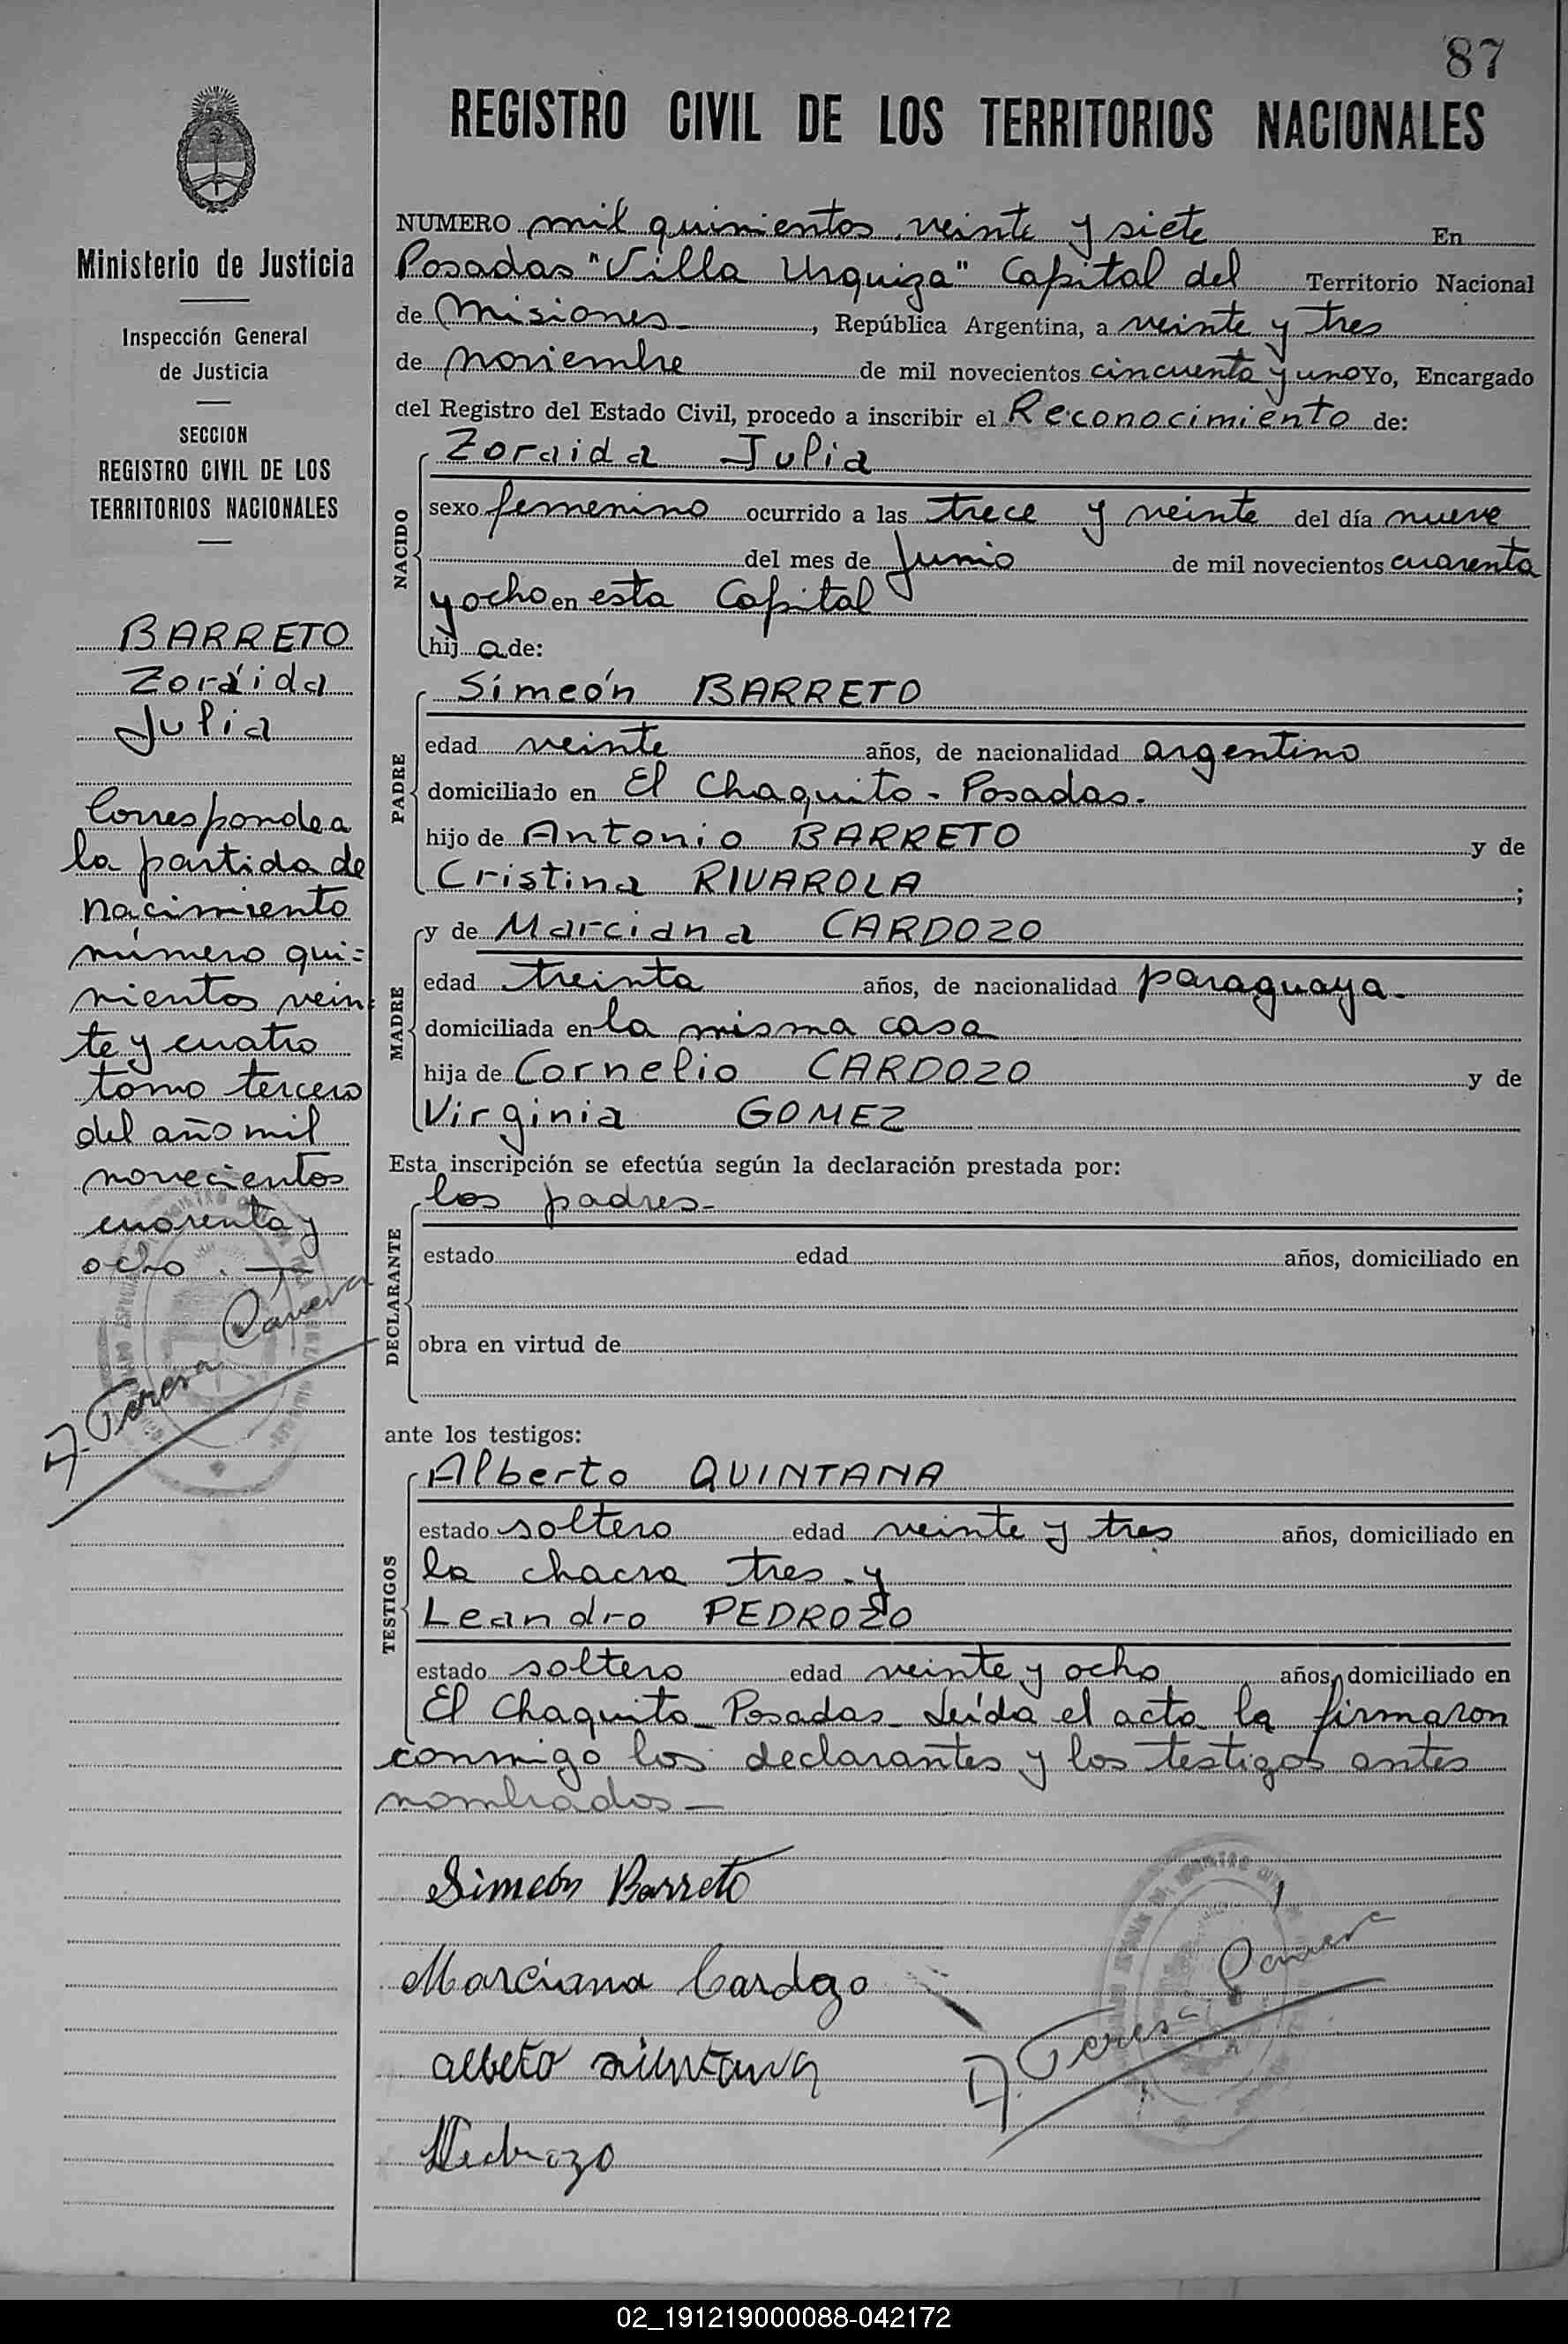 87
REGISTRO CIVIL DE LOS TERRITORIOS NACIONALES
Ministerio de Justicia
Inspección General
de Justicia
SECCION
REGISTRO CIVIL DE LOS
TERRITORIOS NACIONALES
BARRETO
Zoráida
Julia
Corresponde a
la partida de
nacimiento
número qui=
nientos vein=
te y cuatro
tomo tercero
del año mil
novecientos
cuarenta y
ocho.—
NUMERO mil quinientos veinte y siete En
Posadas "Villa Urquiza" Capital del Territorio Nacional
de Misiones-, República Argentina, a veinte y tres
de noviembre de mil novecientos cincuenta y uno Yo, Encargado
del Registro del Estado Civil, procedo a inscribir el Reconocimiento de:
NACIDO
Zoraida Julia
sexo femenino ocurrido a las trece y veinte del día nueve
del mes de Junio de mil novecientos cuarenta
y ocho en esta Capital
hij a de:
PADRE
Simeón BARRETO
edad veinte años, de nacionalidad argentino
domiciliado en El Chaquito - Posadas.
hijo de Antonio BARRETO y de
Cristina RIVAROLA ;
MADRE
y de Marciana CARDOZO
edad treinta años, de nacionalidad paraguaya.
domiciliada en la misma casa
hija de Cornelio CARDOZO y de
Virginia GOMEZ
Esta inscripción se efectúa según la declaración prestada por:
DECLARANTE
los padres-
estado edad años, domiciliado en
obra en virtud de
ante los testigos:
TESTIGOS
Alberto QUINTANA
estado soltero edad veinte y tres años, domiciliado en
la chacra tres y
Leandro PEDROZO
estado soltero edad veinte y ocho años, domiciliado en
El Chaquito - Posadas - Leída el acta la firmaron
conmigo los declarantes y los testigos antes
nombrados—
Simeón Barreto
Marciana Cardozo
02_191219000088-042172